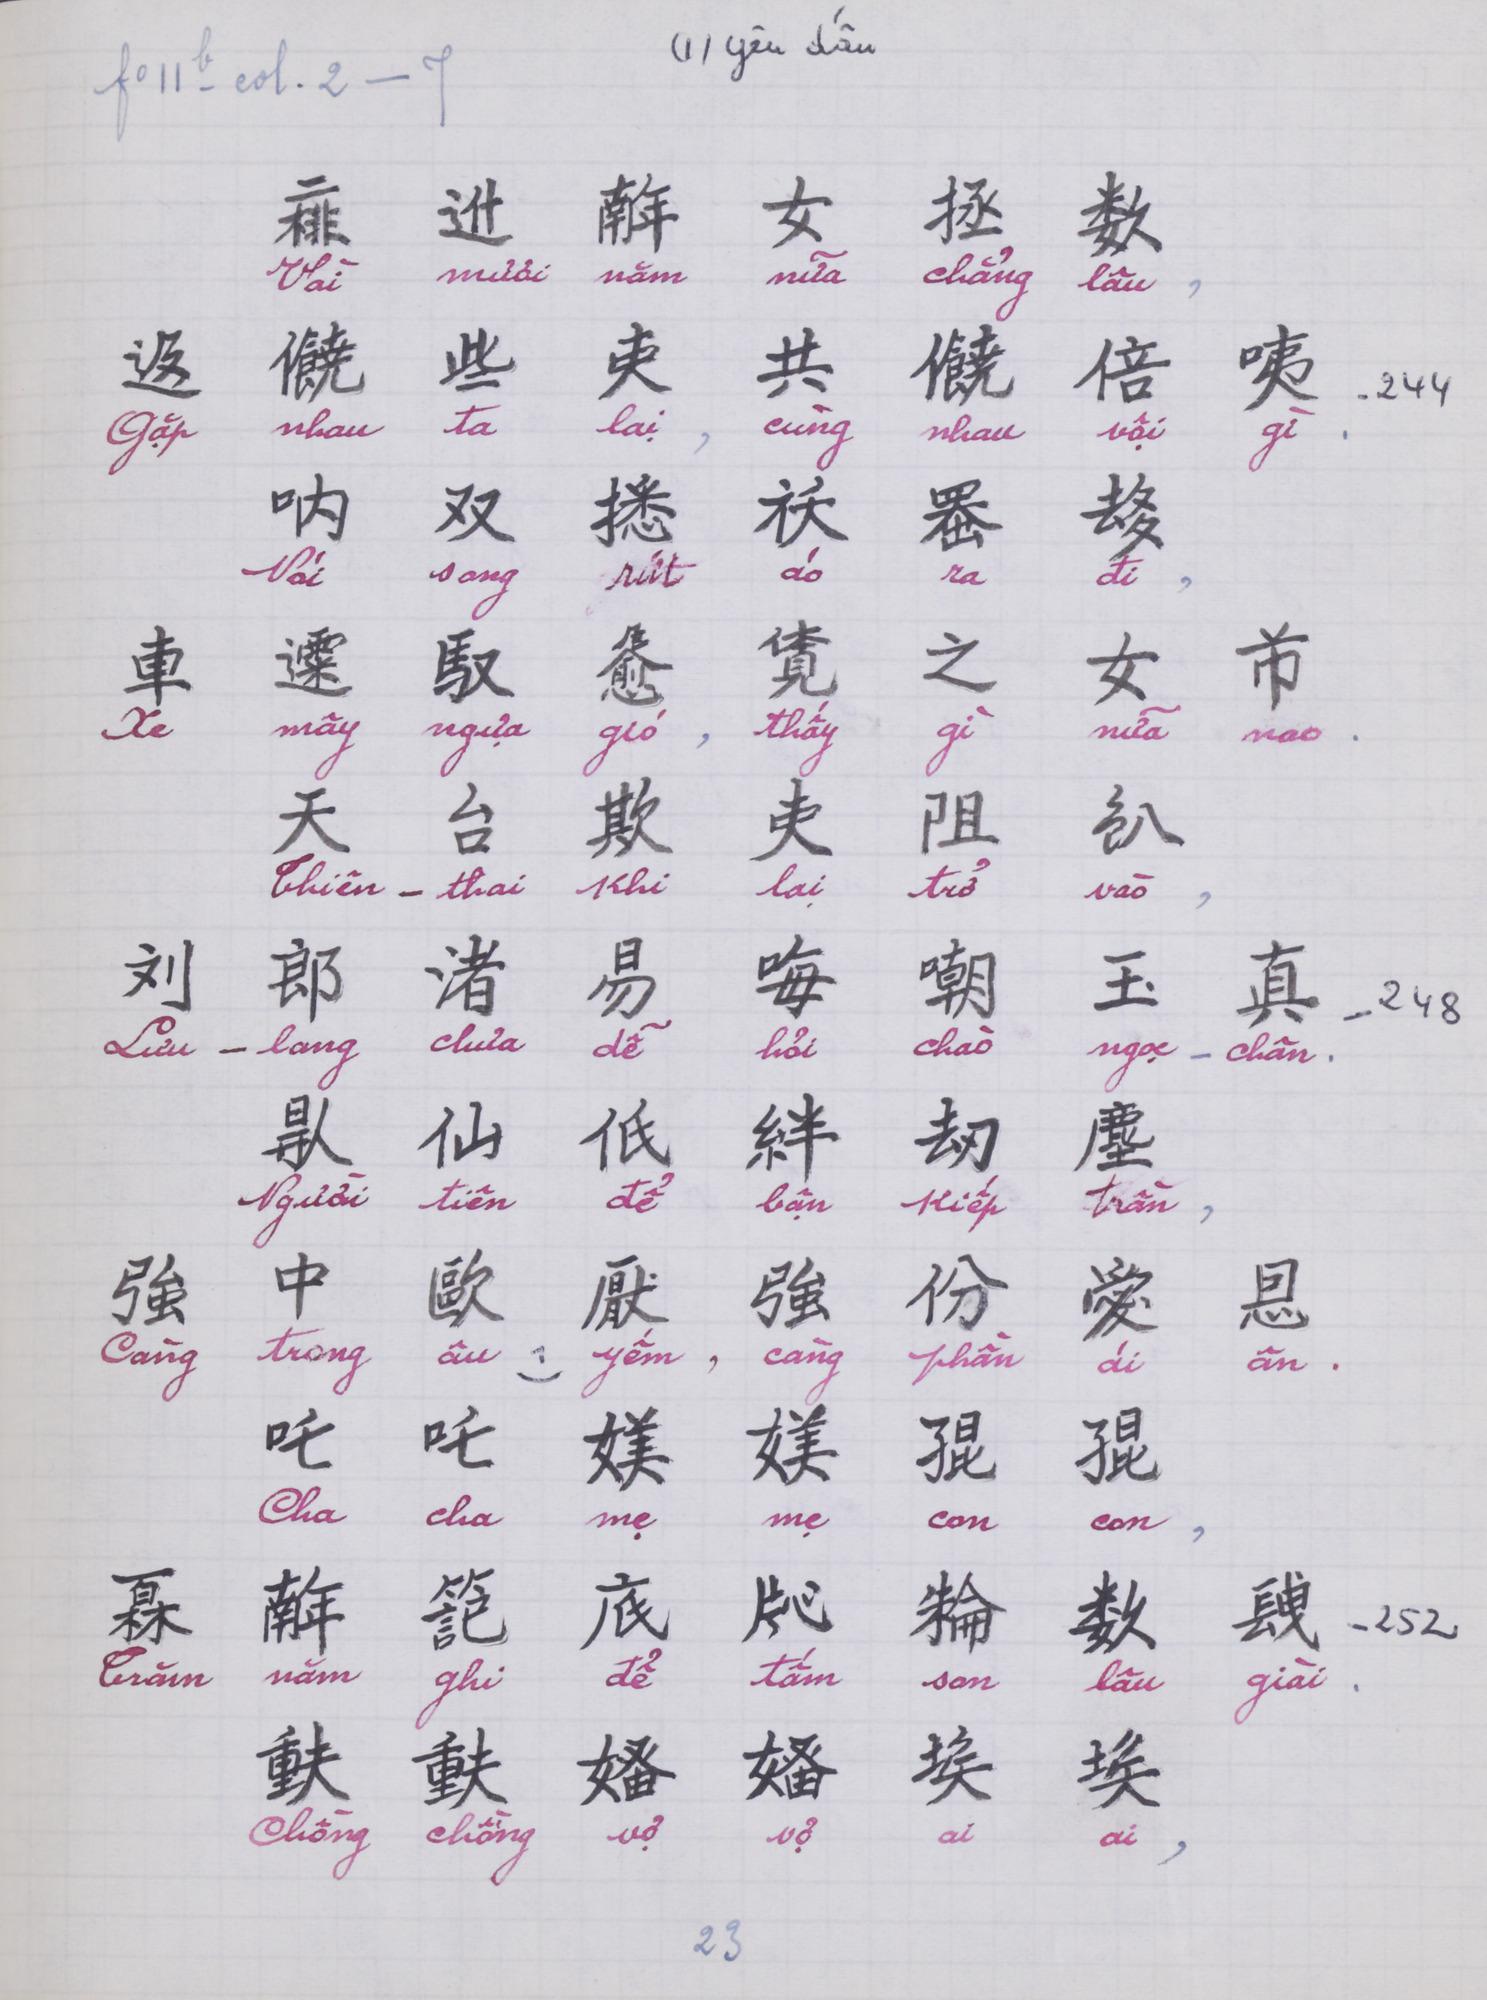 fº 11ᵇ col. 2 — 7
(1) yêu dấu
𨑮 𢆥 女 拯 数
Vài mươi năm nữa chẳng lâu,
﨤 些 吏 共 倍 咦 - 244
Gặp nhau ta lại, cùng nhau vội gì.
吶 双 袄 𠫾
Nói song rút áo ra đi,
車 馭 之 女 市
Xe mây ngựa gió, thấy gì nữa nao.
天 台 欺 吏 阻
Thiên - thai khi lại trở vào,
刘 郎 渚 易 𠳨 嘲 玉 真 - 248
Lưu - lang chưa dễ hỏi chào ngọc - chân.
仙 低 絆 刼 塵
Người tiên để bận kiếp trần,
強 中 歐 厭 強 份 愛 恩
Càng trong âu (1) yếm, càng phần ái ân.
吒 吒 媄 媄 𡥵 𡥵
Cha cha mẹ mẹ con con,
𢆥 底 数 - 252
Trăm năm ghi để tấm son lâu giài.
𫯳 𫯳 𡞕 𡞕 埃 埃
Chồng chồng vợ vợ ai ai,
23